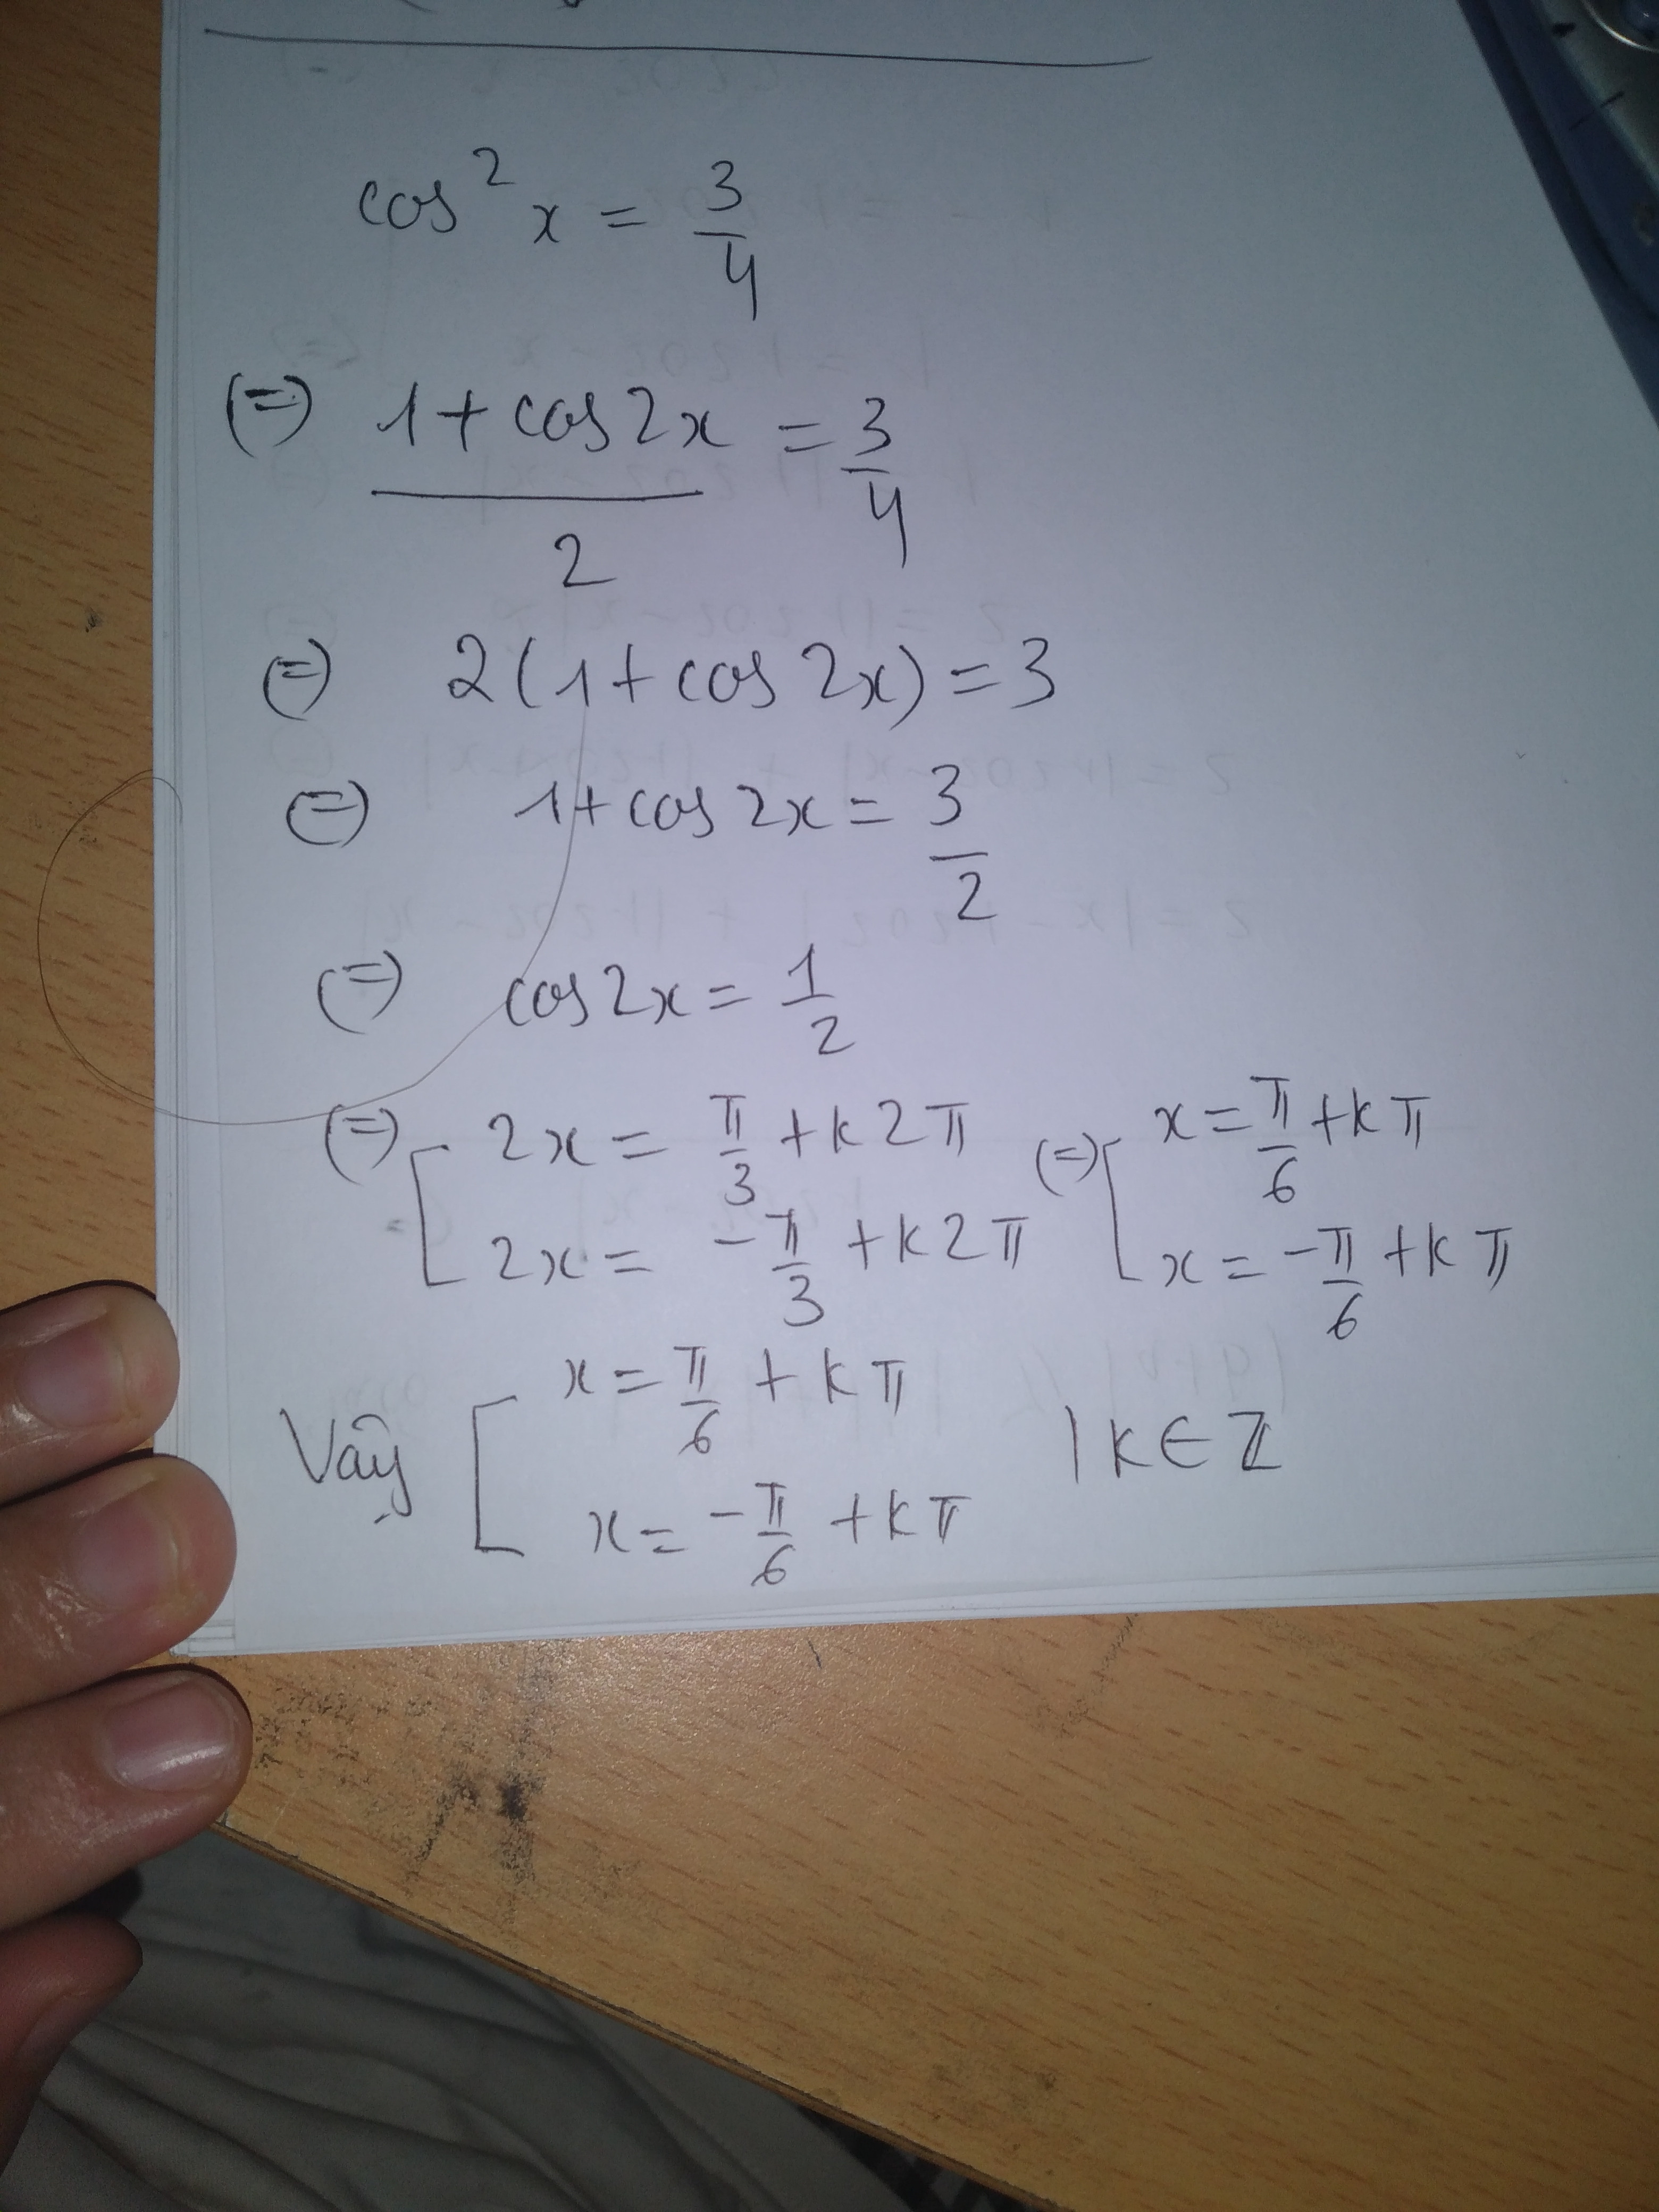 cos² x = 3/4
(=) (1 + cos 2x)/2 = 3/4
(=) 2(1 + cos 2x) = 3
(=) 1 + cos 2x = 3/2
(=) cos 2x = 1/2
(=) [ 2x = π/3 + k2π (=) [ x = π/6 + kπ
2x = -π/3 + k2π x = -π/6 + kπ
Vậy [ x = π/6 + kπ | k ∈ Z
x = -π/6 + kπ